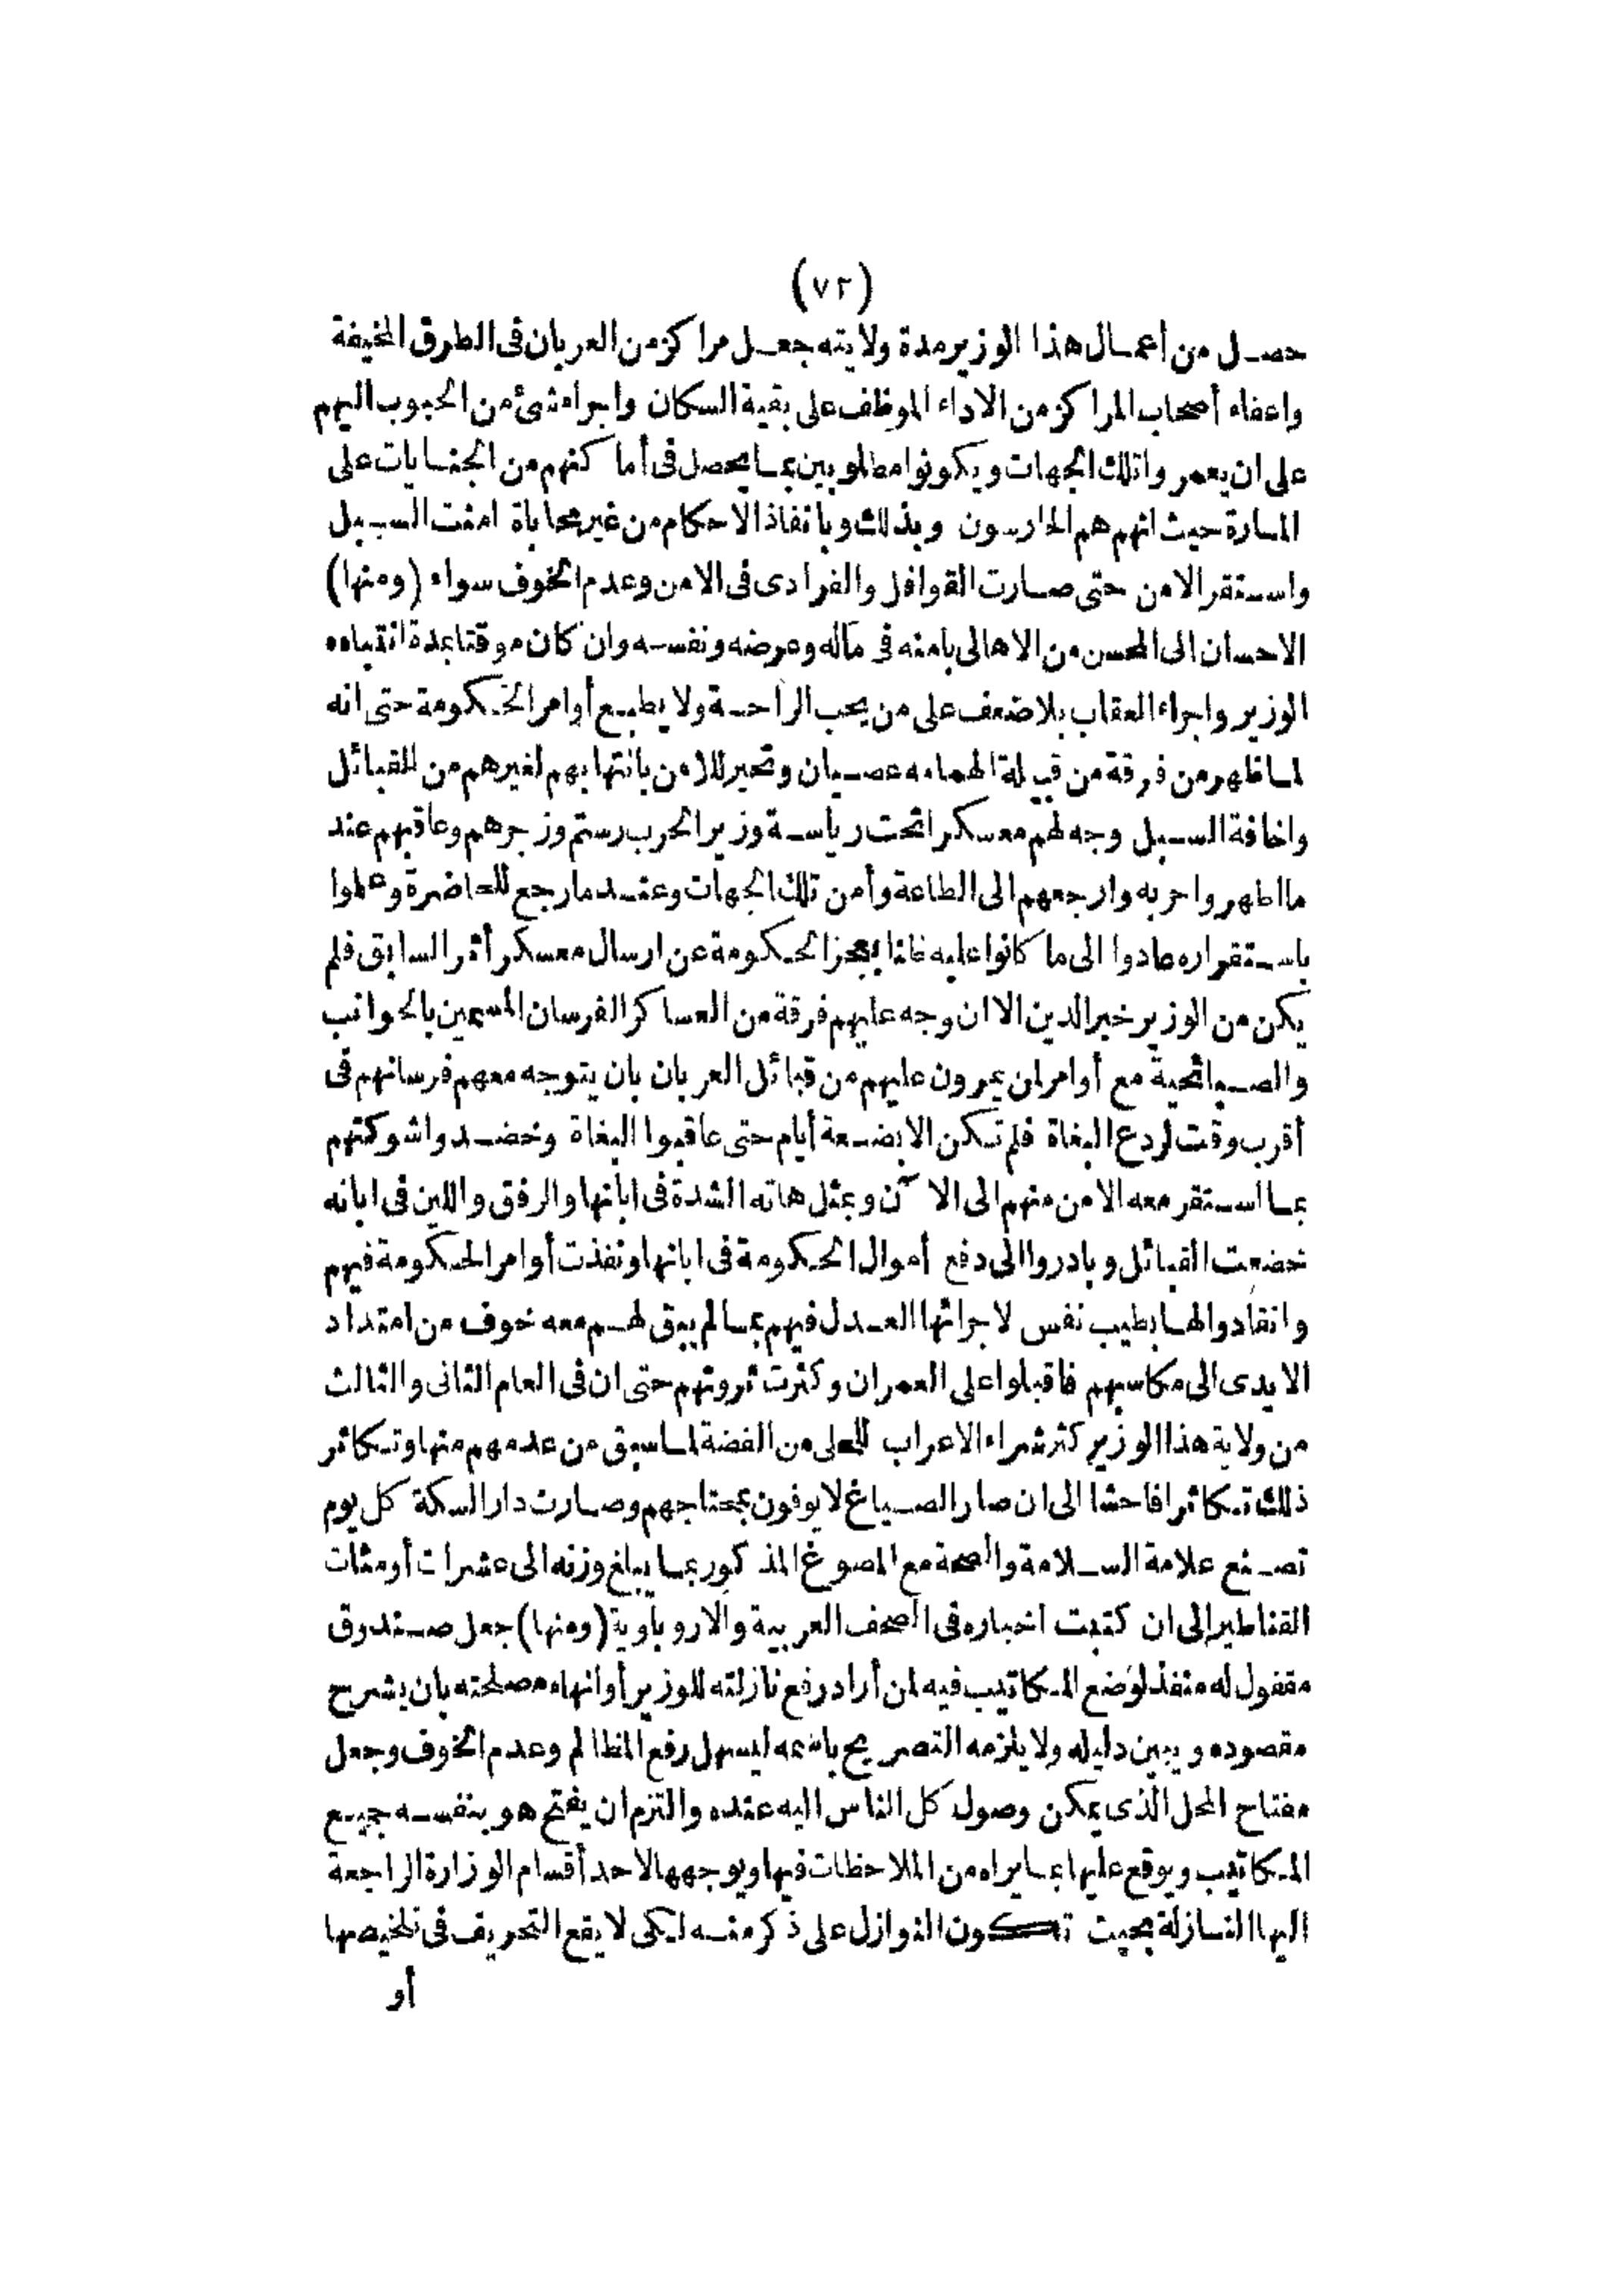 (٧٢)
حصل من أعمال هذا الوزير مدة ولايته جعل مراكز من العربان في الطرق المخيفة
واعفاء أصحاب المراكز من الاداء الموظف على بقية السكان واجراء شئ من الحبوب اليهم
على ان يعمروا تلك الجهات ويكونوا مطلوبين بما يحصل في أماكنهم من الجنايات على
المارة حيث انهم هم الحارسون وبذلك وبانفاذ الاحكام من غير محاباة امنت السبيل
واستقر الامن حتى صارت القوافل والفرادى في الامن وعدم الخوف سواء (ومنها)
الاحسان الى المحسن من الاهالى بامنه في ماله وعرضه ونفسه وان كان موقتا بمدة انتباه
الوزير واجراء العقاب بلا ضعف على من يحب الراحة ولا يطيع أوامر الحكومة حتى انه
لما ظهر من فرقة من قبيلة الهمامه عصيان وتحير للامن بانتهابهم لغيرهم من القبائل
واخافة السبيل وجه لهم معسكرا تحت رياسة وزير الحرب رستم وزجرهم وعاقبهم عند
ما اظهروا حربه وارجعهم الى الطاعة وأمن تلك الجهات وعند ما رجع للحاضرة وعلموا
باستقراره عادوا الى ما كانوا عليه ظانا بعجز الحكومة عن ارسال معسكر أثر السابق فلم
يكن من الوزير خير الدين الا ان وجه عليهم فرقة من العساكر الفرسان المسمين بالحوانب
والصبائحية مع أوامر لن يمرون عليهم من قبائل العربان بان يتوجه معهم فرسانهم في
أقرب وقت لردع البغاة فلم تكن الا بضعة أيام حتى عاقبوا البغاة وخضدوا شوكتهم
بما استقر معه الامن منهم الى الآن وبمثل هاته الشدة في ابانها والرفق واللين في ابانه
خضعت القبائل وبادروا الى دفع أموال الحكومة في ابانها ونفذت أوامر الحكومة فيهم
وانقادوا لها بطيب نفس لاجرائها العدل فيهم بما لم يبق لهم معه خوف من امتداد
الايدى الى مكاسبهم فاقبلوا على العمران وكثرت ثروتهم حتى ان في العام الثانى والثالث
من ولاية هذا الوزير كثر شراء الاعراب للحلى من الفضة لما سبق من عدمهم منها وتكاثر
ذلك تكاثرا فاحشا الى ان صار الصياغ لا يوفون بمحتاجهم وصارت دار السكة كل يوم
تصنع علامة السلامة والصحة مع المصوغ المذكور بما يبلغ وزنه الى عشرات أو مئات
القناطير الى ان كتبت اخباره في الصحف العربية والاروباوية (ومنها) جعل صندوق
مقفول له منفذ لوضع المكاتيب فيه لمن أراد رفع نازلته للوزير أو انهاء مصلحته بان يشرح
مقصوده ويبين دليله ولا يلزمه التصريح باسمه ليسهل رفع المظالم وعدم الخوف وجعل
مفتاح المحل الذى يمكن وصول كل الناس اليه عنده والتزم ان يفتح هو بنفسه جميع
المكاتيب ويوقع عليها بما يراه من الملاحظات فيها ويوجهها لاحد أقسام الوزارة الراجعة
اليها النازلة بحيث تكون النوازل على ذكر منه لكى لا يقع التحريف في تلخيصها
أو